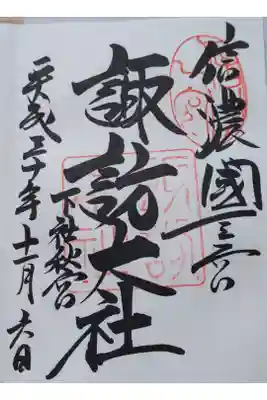 信濃國一之宮
諏訪大社
下社秋宮
平成三十年十一月六日